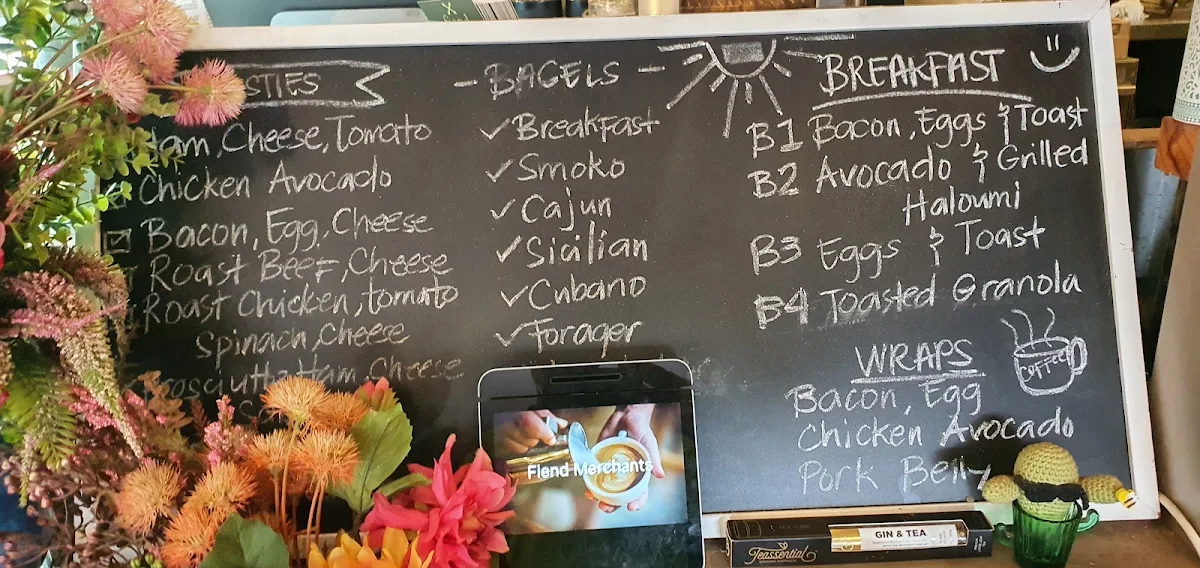 STIES
Ham, Cheese, Tomato
Chicken Avocado
Bacon, Egg, Cheese
Roast Beef, Cheese
Roast Chicken, tomato
Spinach, Cheese
Ham, Cheese
- BAGELS -
✓ Breakfast
✓ Smoko
✓ Cajun
✓ Sicilian
✓ Cubano
✓ Forager
BREAKFAST
B1 Bacon, Eggs & Toast
B2 Avocado & Grilled
Haloumi
B3 Eggs & Toast
B4 Toasted Granola
WRAPS
Bacon, Egg
Chicken Avocado
Pork Belly
COFFEE
Fiend Merchants
Teassential
GIN & TEA